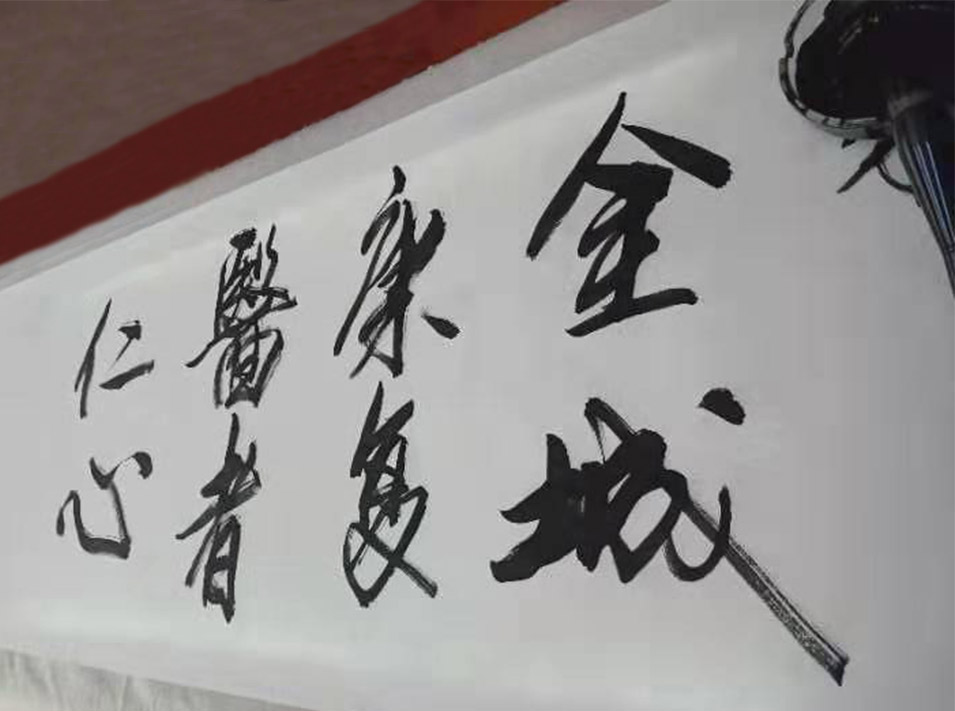 金城
康复
醫者
仁心